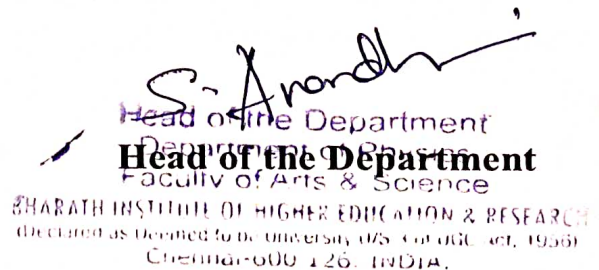 S. Anandhi
Head of the Department
Department of Physics
Head of the Department
Faculty of Arts & Science
BHARATH INSTITUTE OF HIGHER EDUCATION & RESEARCH
(Declared as Deemed to be University U/S 3 of UGC Act, 1956)
Chennai-600 126. INDIA.